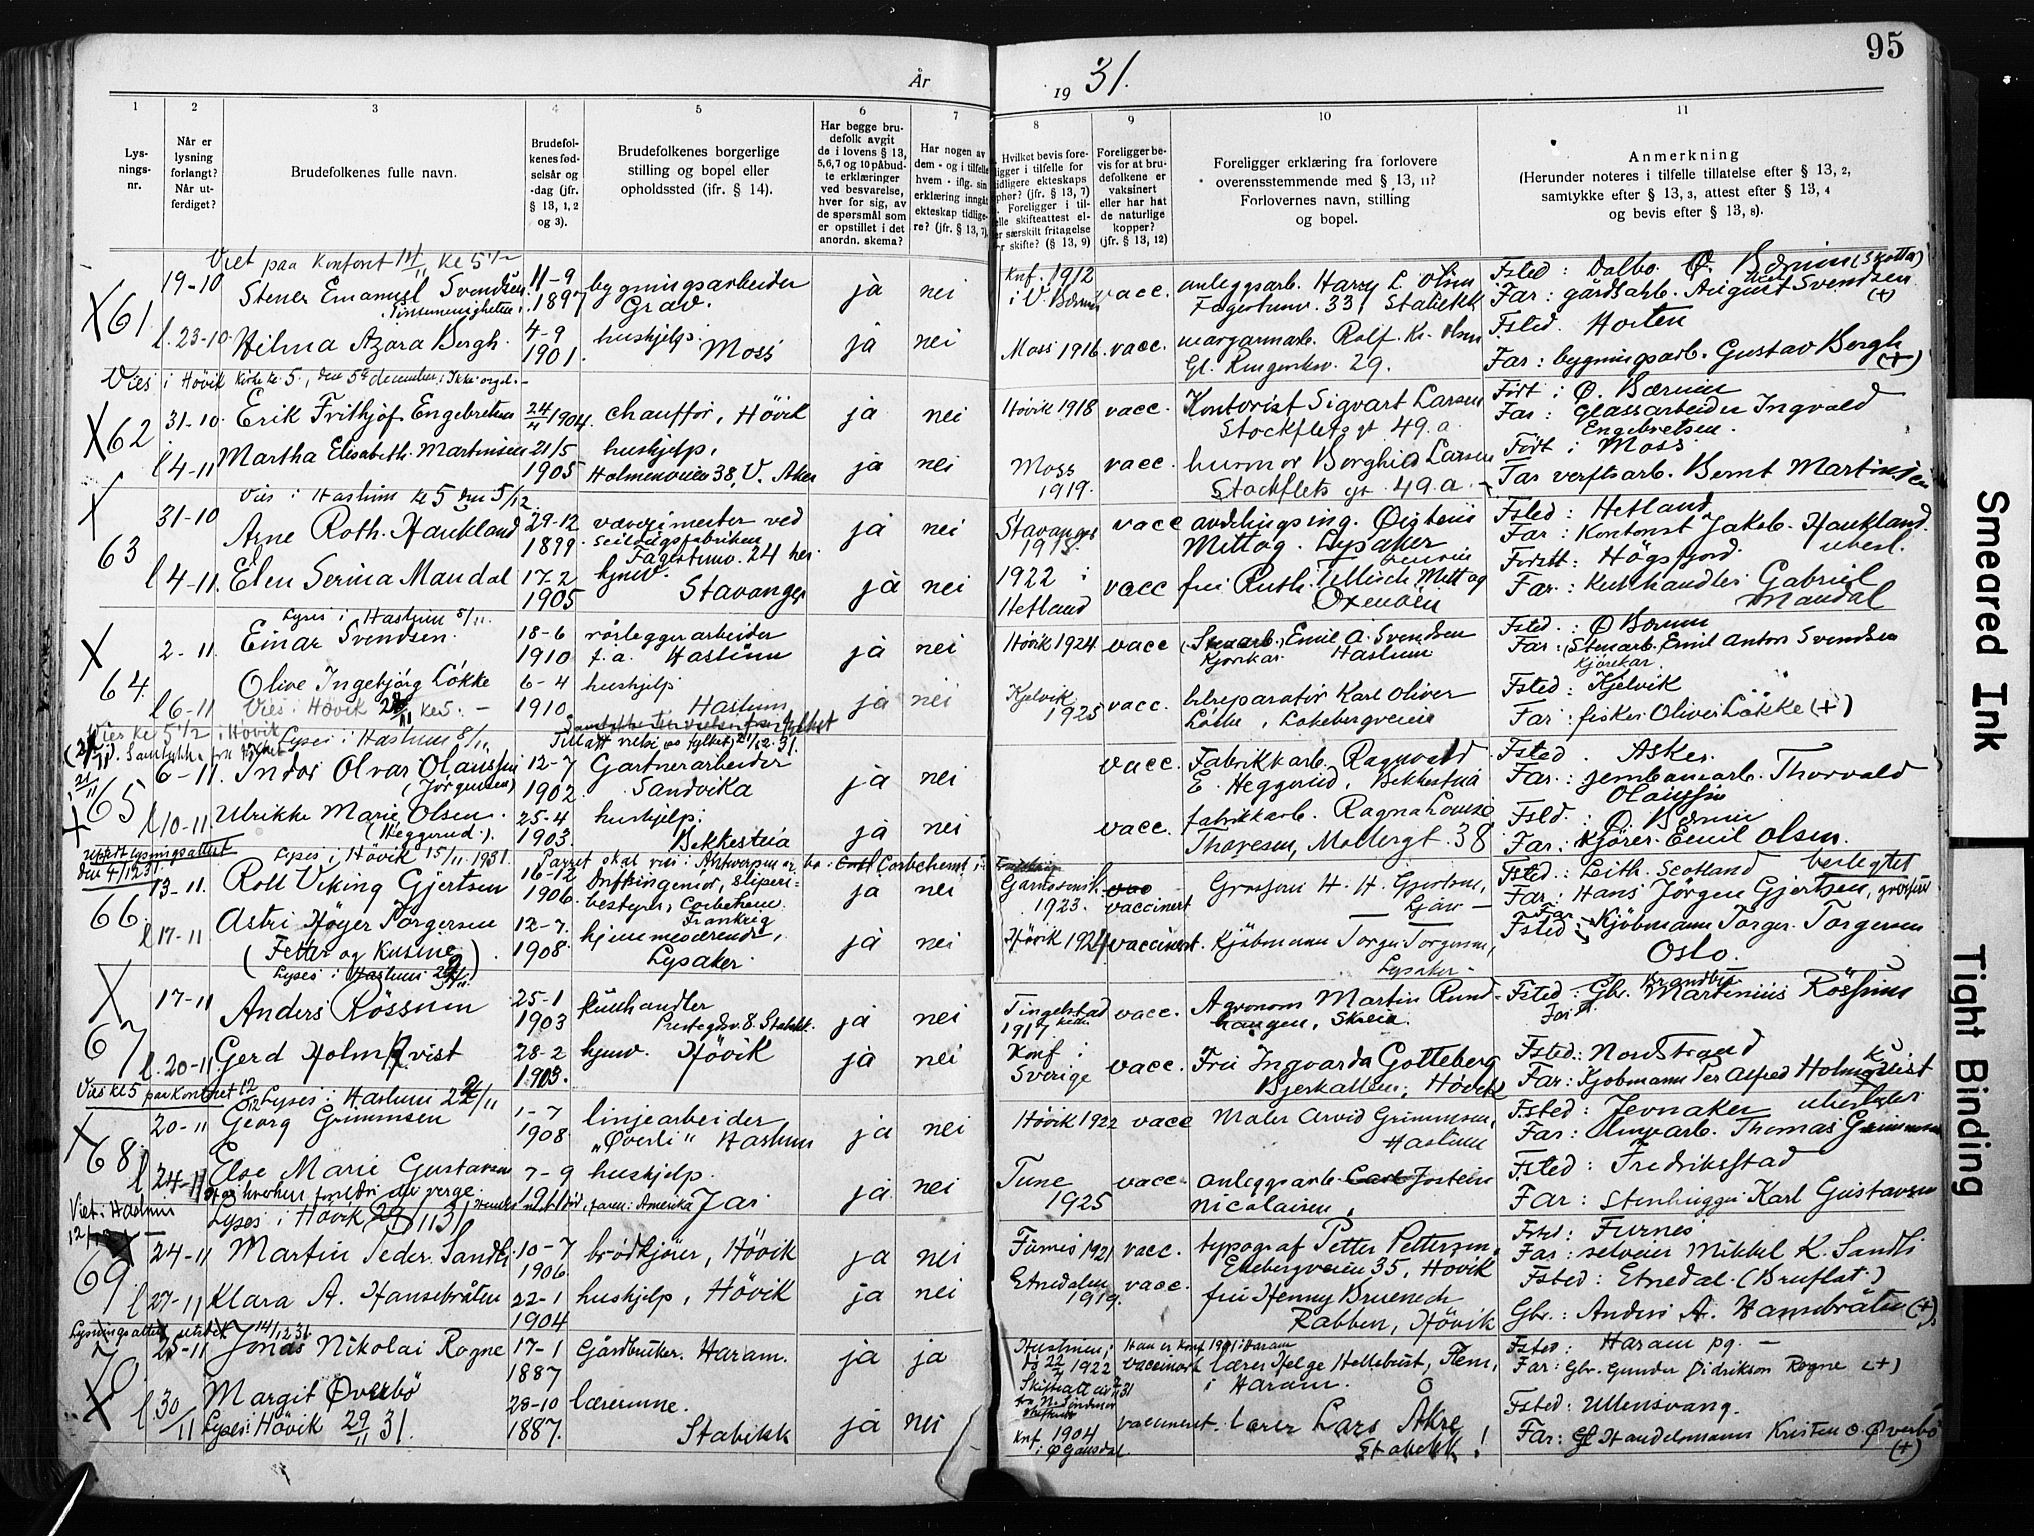 95
År 1931.
1 2 3 4 5 6 7 8 9 10 11
Lys-
nings-
nr.
Når er
lysning
forlangt?
Når ut-
ferdiget?
Brudefolkenes fulle navn.
Brudefol-
kenes fød-
selsår og
-dag (jfr.
§ 13, 1, 2
og 3).
Brudefolkenes borgerlige
stilling og bopel eller
opholdssted (jfr. § 14).
Har begge bru-
defolk avgit
de i lovens § 13,
5,6,7 og 10 påbud-
te erklæringer
ved besvarelse,
hver for sig, av
de spørsmål som
er opstillet i det
anordn. skema?
Har nogen av
dem - og i tilfelle
hvem - iflg. sin
erklæring inngåt
ekteskap tidlige-
re? (jfr. § 13, 7).
Hvilket bevis fore-
ligger i tilfelle for
tidligere ekteskaps
ophør? (jfr. § 13, 7)
Foreligger i til-
felle skifteattest el-
er særskilt fritagelse
for skifte? (§ 13, 9)
Foreligger be-
vis for at bru-
defolkene er
vaksinert
eller har hat
de naturlige
kopper?
(jfr. § 13, 12)
Foreligger erklæring fra forlovere
overensstemmende med § 13, 11?
Forlovernes navn, stilling
og bopel.
Anmerkning
(Herunder noteres i tilfelle tillatelse efter § 13, 2,
samtykke efter § 13, 3, attest efter § 13, 4
og bevis efter § 13, 8).
Viet paa kontoret 14/11 kl 5 1/2
X61 19-10 Stener Emanuel Svendsen 11-9 1897 bygningsarbeider Grav. ja nei Knf. 1912 i V. Bærum vacc. anleggsarb. Harry L. Olsen Fagertunv. 33, Stabekk Fsted: Dalbo. Ø. Bærum
Far: gårdsarb. August Svendsen (+)
l. 23-10 Hilma Azora Bergh. 4-9 1901. hushjelp. Moss ja nei Moss 1916. vacc. margarinarb. Rolf Kr. Olsen Gl. Ringeriksv. 29. Fsted. Horten
Far: bygningsarb. Gustav Bergh (+)
Vies i Hövik kirke kl. 5, den 5te december. Ikke orgel. -
X62 31-10. Erik Frithjof Engebretsen 24/11 1904. chauffør, Hövik ja nei Hövik 1918 vacc. Kontorist Sigvart Larsen Stockflets gt 49. a. Født i Ø. Bærum
Far: Glassarbeider Ingvald Engebretsen.
l 4-11 Martha Elisabeth Martinsen 21/5 1905 hushjelp, Holmenveien 38, V. Aker ja nei Moss 1919. vacc. husmor Borghild Larsen Stockflets gt. 49. a. - Født i Moss
Far verftsarb. Bernt Martinsen
Vies i Haslum kl 5 den 5/12
X 63 31-10 Arne Roth. Haukland 29-12 1899. væverimester ved Seildugsfabriken Fagertunv. 24 ja nei Stavanger 1915. vacc avdelingsing. Øistein Mittag. Lysaker Fsted: Hetland
Far: Kontorist Jakob Haukland.
l 4-11. Elen Serina Maudal 17-2 1905 hjmv. Stavanger ja nei 1922 i Hetland vacc fru Ruth Tellisch Mittag Oxenöen Fsted: Högsfjord.
Far: Kulhandler Gabriel Maudal
Lyses i Haslum 8/11.
X 64. 2-11. Einar Svendsen. 18-6 1910 rørleggerarbeider f. a. Haslum ja nei Hövik 1924 vacc (Stenarb.) Emil A. Svendsen Kjørekar Haslum Fsted: Ø Bærum
Far: (Stenarb.) Emil Anton Svendsen Kjørekar.
l 6-11 Olive Ingebjørg Løkke 6-4 1910. hushjelp Haslum ja nei Kjelvik 1925 vacc. bilreparatør Karl Oliver Løkke, Løkebergveien Fsted: Kjelvik
Far: fisker Oliver Løkke (+)
Vies i Hövik kl 5. -
Vies kl 5 1/2 i Hövik
Lyses i Haslum 8/11
Tillatt viet av fylket 21/12. 31.
65 6-11. Indor Olvar Olaussen (Jörgensen) 12-7 1902. Gartnerarbeider Sandvika ja nei vacc. Fabrikkarb. Ragnvald E. Heggerud, Bekkestua Fsted. Asker.
Far: jernbanearb. Thorvald Olaussen
X l 10-11 Ulrikke Marie Olsen. (Heggerud). 25-4 1903. hushjelp. Bekkestua ja nei vacc. fabrikkarb. Ragna Louise Thoresen, Møllergt. 38 Fsted: Ø. Bærum
Far: Kjører Emil Olsen.
Utstedt lysningsattest den 4/12 31.
Lyses i Hövik 15/11 1931.
Parret skal vies i Antwerpen
66. 13-11. Rolf Viking Gjertsen 16-12 1906. Driftsingeniør, Sliperi-
bestyrer, Corbehem. Frankrig ja nei 1923. vaccinert Grosserer H. H. Gjertsen, Fsted: Leith. Scotland
Far: Hans Jörgen Gjertsen, grosserer
l 17-11 Astri Høyer Torgersen 12-7. 1908 hjemmeværende, Lysaker. ja nei Hövik 1924 vaccinert. Kjøbmann Torger Torgersen, Lysaker - Far Kjøbmann Torger Torgersen
Fsted: Oslo.
(Fetter og Kusine)
Lyses i Haslum 22/11.
X 67 17-11 Anders Rössum 25-1 1903 kullhandler Prestegdsv. 8. Stabekk. ja nei Tingelstad 1917 vacc. Agronom Martin Rund-
haugen, Skreia. Fsted: Brandbu
Far Gbr. Martinius Rössum
l. 20-11 Gerd Holmqvist 28-2 1903. hjmv. Hövik ja nei Konf i Sverige vacc. Fru Ingvarda Gotteberg Bjerkealleen, Hövik Fsted: Nordstrand
Far: Kjøbmann Per Alfred Holmqvist
Vies kl 5 paa kontoret 12/12
Lyses i Haslum 22/11
X 68. 20-11 Georg Grimmsen 1-7 1908 linjearbeider „Øverli" Haslum ja nei Hövik 1922 vacc Maler Arvid Grimmsen, Haslum Fsted: Jevnaker
Far: Thomas Grimmsen
l 24-11 Else Marie Gustavsen 7-9 1911 hushjelp. Jar ja nei Tune 1925 vacc. anleggsarb. Jostein Nicolaisen. Fsted: Fredrikstad
Far: Stenhugger Karl Gustavsen
Viet i Haslum 12/12
Lyses i Hövik 29/11 31
69 24-11 Martin Peder Sandli 10-7 1906 brødkjører, Hövik ja nei Furnes 1921 vacc. typograf Petter Pettersen. Ekebergveien 35, Hövik Fsted: Furnes
Far: selveier Mikkel K. Sandli
l 27-11 Klara A. Hansebråten 22-1 1904 hushjelp, Hövik ja nei Etnedalen 1919. vacc. fru Henny Bruenech Rabben, Hövik Fsted: Etnedal. (Bruflat.)
Gbr.: Anders A. Hansebråten (+)
Lysningsattest utstedt 14/12 31
70 25-11 Jonas Nikolai Rogne 17-1 1887 Gårdbruker. Haram. ja ja Hustruen 22/7 1922 Han er konf 1901 i Haram
vaccinert lærer Helge Hellebust, Flem, i Haram. Fsted: Haram pg. -
Far: Gbr. Gunder Didrikson Rogne (+)
X l. 30/11 Margit Øverbö 28-10 1887. lærerinne. Stabekk ja nei Knf. 1904 vaccinert. Lærer Lars Åkre Stabekk! Fsted: Ullensvang.
Far: Handelsmann Kristen O. Øverbö (+)
Lyses i Hövik 29/11 31.
Smeared Ink
Tight Binding